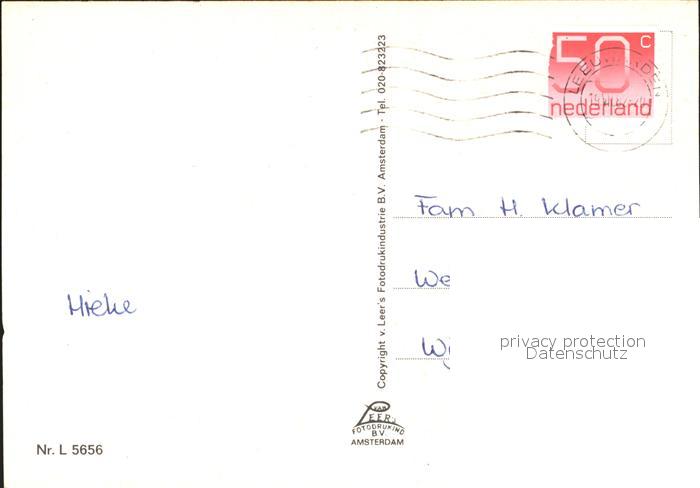 50 c
nederland
LEEUWARDEN
Copyright v. Leer's Fotodrukindustrie B.V. Amsterdam - Tel. 020-823223
Fam H. Klamer
We
Wi
privacy protection
Datenschutz
Mieke
VAN
LEER's
FOTODRUKIND
B.V.
AMSTERDAM
Nr. L 5656